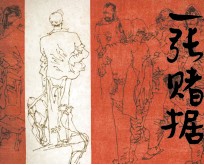 一张赌据